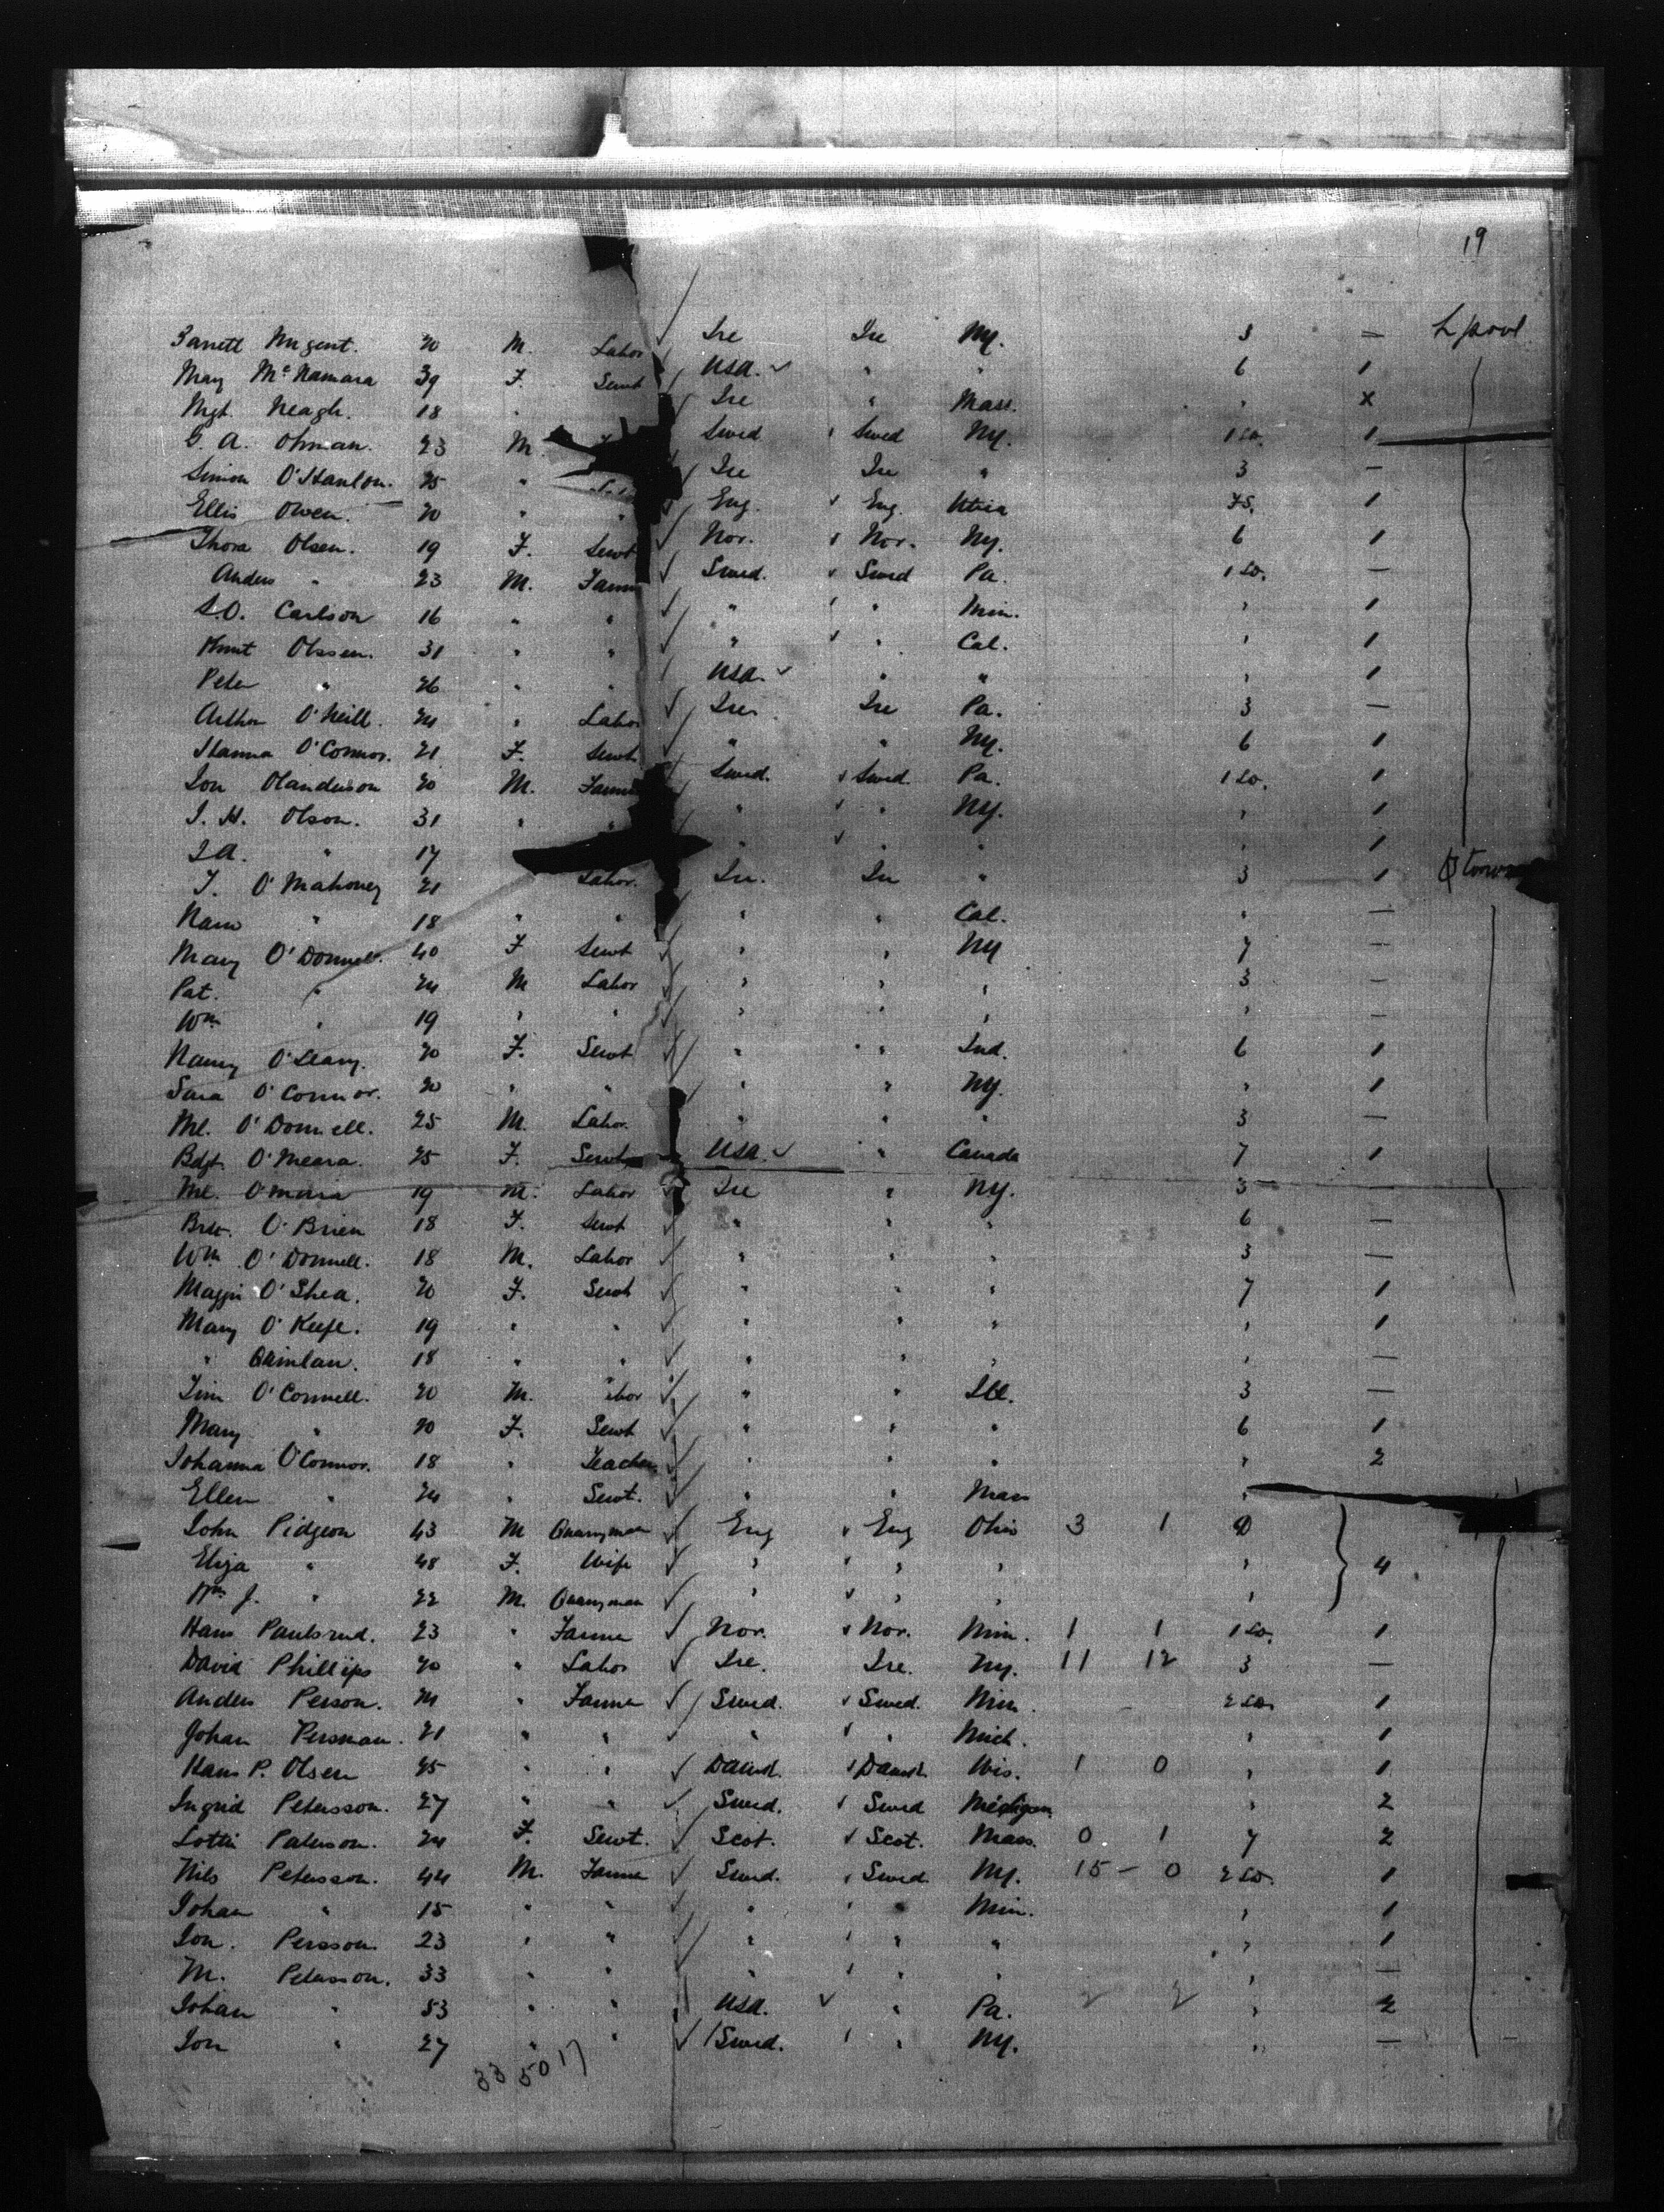 19
Garrett Nugent. 20 M. Labor Ire Ire NY. 3 — L'pool
Mary McNamara 39 F. Sewt USA. " " 6 1
Mgt. Neagh. 18 " Ire " Mass. " X
G. A. Ohman. 23 M. Swed Swed NY. 1 So. 1
Simon O'Hanlon. 25 " Ire Ire " 3 —
Ellis Owen. 20 " " Eng. Eng. Utica 1
Thora Olsen. 19 F. Sewt Nor. Nor. NY. 6 1
Anders " 23 M. Farm Swed. Swed Pa. 1 So. —
S.O. Carlson 16 " " " " Min. " 1
Knut Olssen. 31 " " " " Cal. " 1
Peter " 26 " " USA. " " " 1
Arthur O'Neill. 24 " Labor Ire Ire Pa. 3 —
Hanna O'Connor. 21 F. Sewt " " NY. 6 1
Jon Olanderson 20 M. Farme Swed. Swed. Pa. 1 So. 1
J. H. Olson. 31 " " " " NY. " 1
J A. " 17 " " " " 1
T. O'Mahoney 21 Labor. Ire. Ire " 3 1 Qtown
" 18 " " " " Cal. " —
Mary O'Donnell. 40 F Sewt " " NY 7 —
Pat. " 24 M Labor " " " 3 —
Wm " 19 " " " " " " —
Nancy O'Leary. 20 F. Sewt " " Ind. 6 1
Sara O'Connor. 20 " " " " NY. " 1
Ml. O'Donnell. 25 M. Labor. " " " 3 —
Bdgt. O'Meara. 25 F. Sewt USA. " Canada 7 1
Ml. O'Mara 19 M. Labor Ire " NY. 3 —
O'Brien 18 F. Sewt " " " 6 —
Wm O'Donnell. 18 M. Labor " " " 3 —
Maggie O'Shea. 20 F. Sewt " " " 7 1
Mary O'Keefe. 19 " " " " " " 1
" Quinlan. 18 " " " " " " —
Tim O'Connell. 20 M. Labor " " Ill. 3 —
Mary " 20 F. Sewt " " " 6 1
Johanna O'Connor. 18 " Teacher " " " " 2
Ellen " 24 " Sewt. " " Mass "
John Pidgeon 43 M Quarryman Eng Eng Ohio 3 1 D
Eliza " 48 F. Wife " " " " 4
Wm J. " 22 M. Quarryman " " " "
Hans Paulsrud. 23 " Farmer Nor. Nor. Min. 1 1 1 So. 1
David Phillips 20 " Labor Ire. Ire. NY. 11 12 3 —
Anders Person. 21 " Farmer Swed. Swed. Min. 2 So. 1
Johan Persman. 21 " " " " Mich. " 1
Hans P. Olsen 25 " " Danish. Danish. Wis. 1 0 " 1
Ingrid Petersson. 27 " " Swed. Swed Michigan " 2
Lottie Paterson. 24 F. Sewt. Scot. Scot. Mass. 0 1 7 2
Nils Petersson. 44 M. Farmer Swed. Swed. NY. 15 — 0 2 So. 1
Johan " 15 " " " " Min. " 1
Jon. Persson. 23 " " " " " " 1
M. Petersson. 33 " " " " " " —
Johan " 53 " " USA. " Pa. 2 2 " 2
Jon " 27 " " Swed. " NY. " —
33 50 17